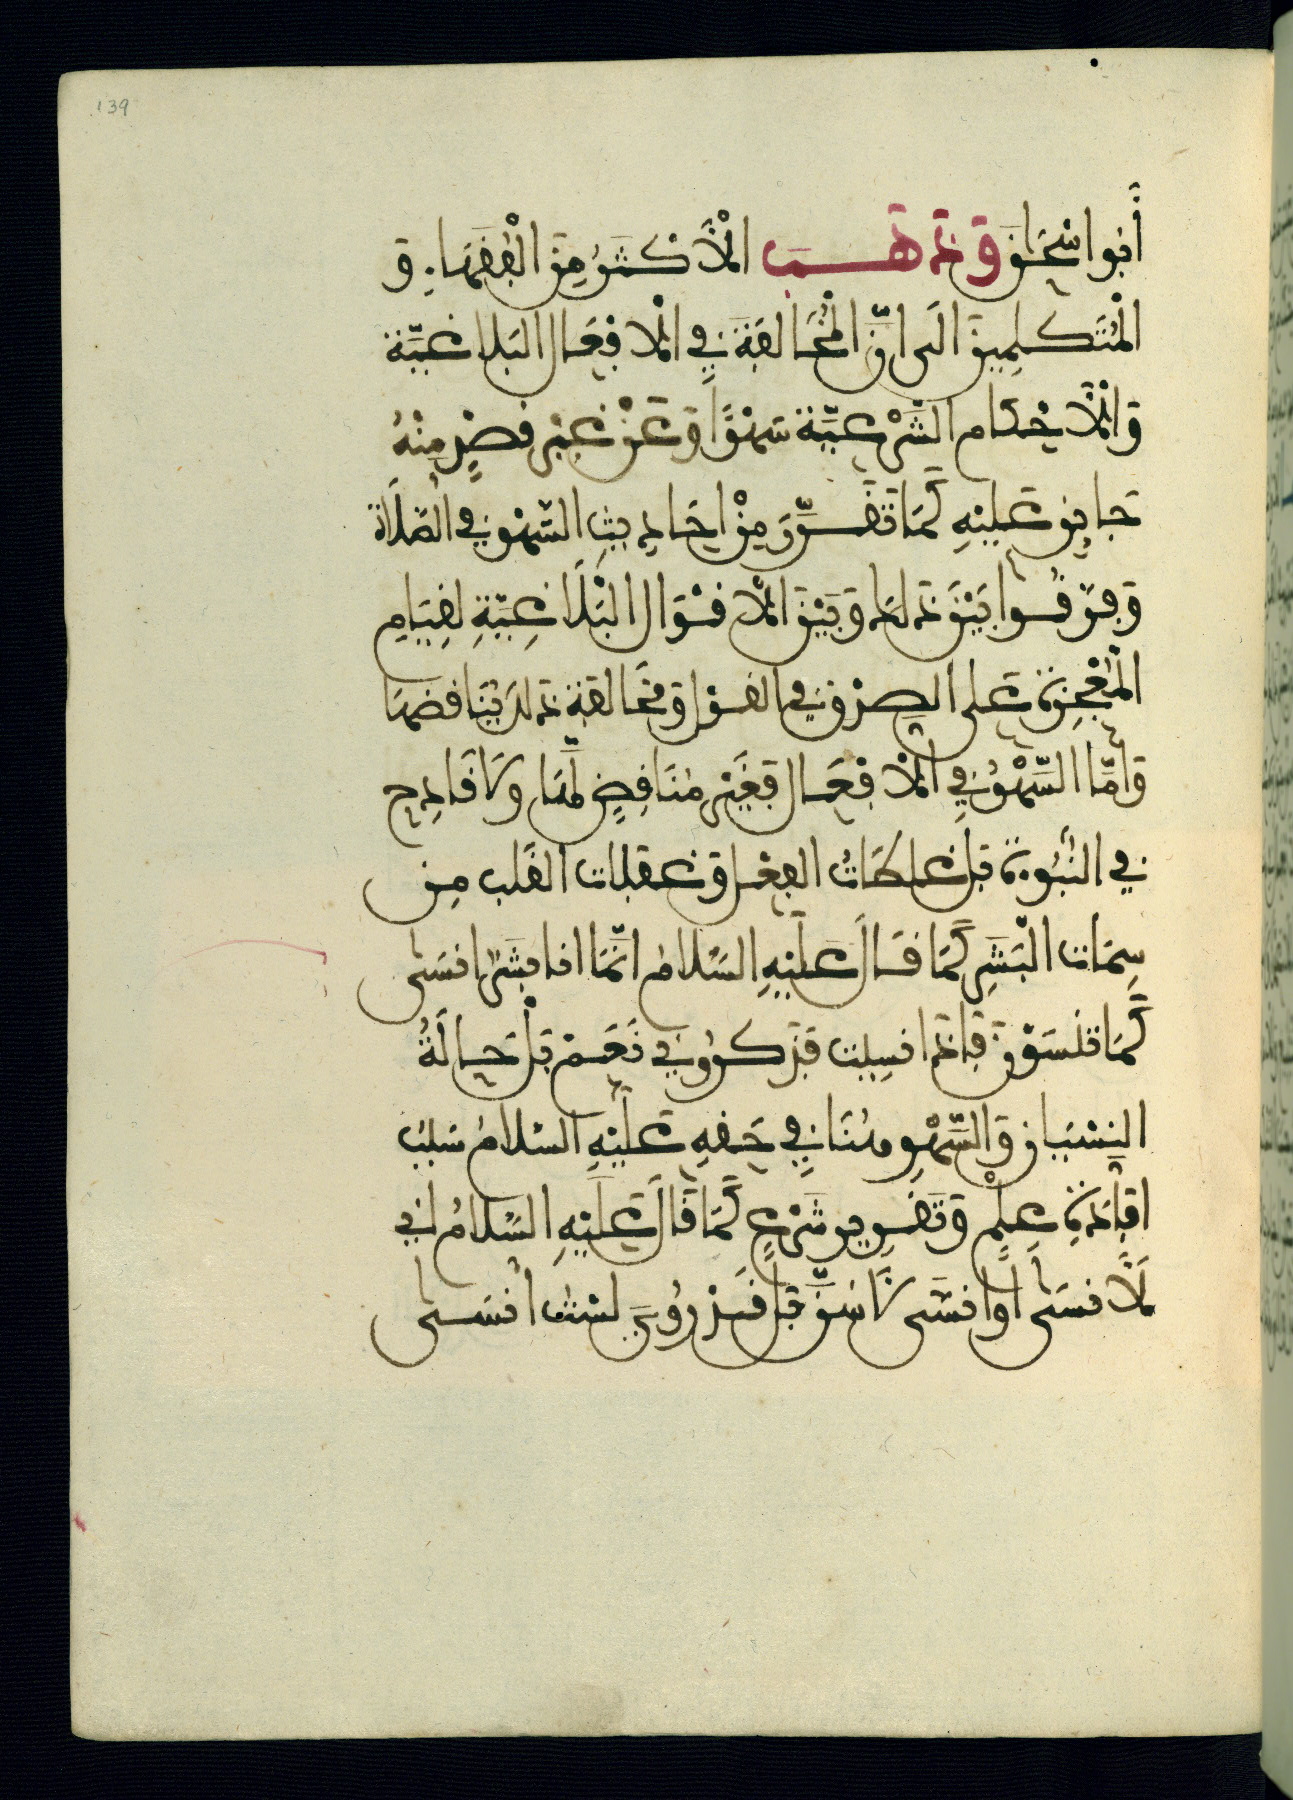 139
أَبُوا سْحَاقَ وَذَهَبَ الْأَكْثَرُ مِنَ الْفُقَهَاءِ وَ
الْمُتَكَلِّمِينَ الَى انَّ الْمُخَالَفَةَ فِي الْأَفْعَالِ الْبَلَاغِيَّة
وَالْأَحْكَامِ الشَّرْعِيَّةِ سَهْوًا وَعَنْ غَيْرِ قَصْدٍ مِنْهُ
جَايِزٌ عَلَيْهِ كَمَا تَقَرَّرَ مِنْ احَادِيثِ السَّهْوِ فِي الصَّلَاة
وَفَرَّقُوا بَيْنَ ذَلِكَ وَبَيْنَ الْأَقْوَالِ الْبَلَاغِيَّةِ لِقِيَامِ
الْمُعْجِزَةِ عَلَى الصِّدْقِ فِي الْقَوْلِ وَمُخَالَفَةُ ذَلِكَ يُنَاقِضُهَا
وَأَمَّا السَّهْوُ فِي الْأَفْعَالِ فَغَيْرُ مُنَاقِضٍ لَّهَا وَلَا قَادِحٍ
فِي النُّبُوءَةِ بَلْ غَلَطَاتُ الْفِعْلِ وَغَفَلَاتُ الْقَلْبِ مِنْ
سِمَاتِ الْبَشَرِ كَمَا قَالَ عَلَيْهِ السَّلَامُ انَّمَا انَا بَشَرٌ انْسَى
كَمَا تَنْسَوْنَ فَاذَا نَسِيتُ فَذَكِّرُونِي نَعَمْ بَلْ حَالَةُ
النِّسْيَانِ وَالسَّهْوِ هُنَا فِي حَقِّهِ عَلَيْهِ السَّلَامُ سَبَبُ
افَادَةِ عِلْمٍ وَتَقْرِيرِ شَرْعٍ كَمَا قَالَ عَلَيْهِ السَّلَامُ انِّي
لَأَنْسَى أَوْ انَسَّى لِأَسُنَّ بَلْ قَدْ رُوِيَ لَسْتُ أَنْسَى